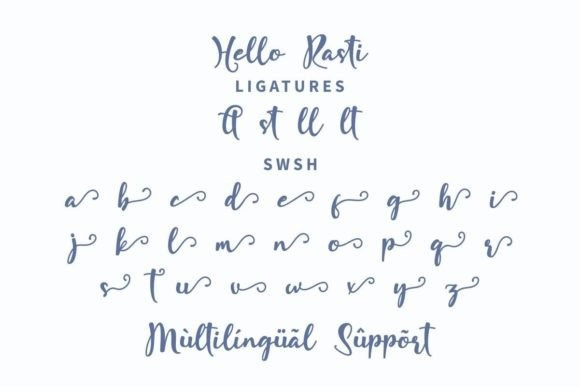 Hello Rasti
LIGATURES
tt st ll lt
SWSH
a b c d e f g h i
j k l m n o p q r
s t u v w x y z
Mùltilíngüãl Sûppõrt